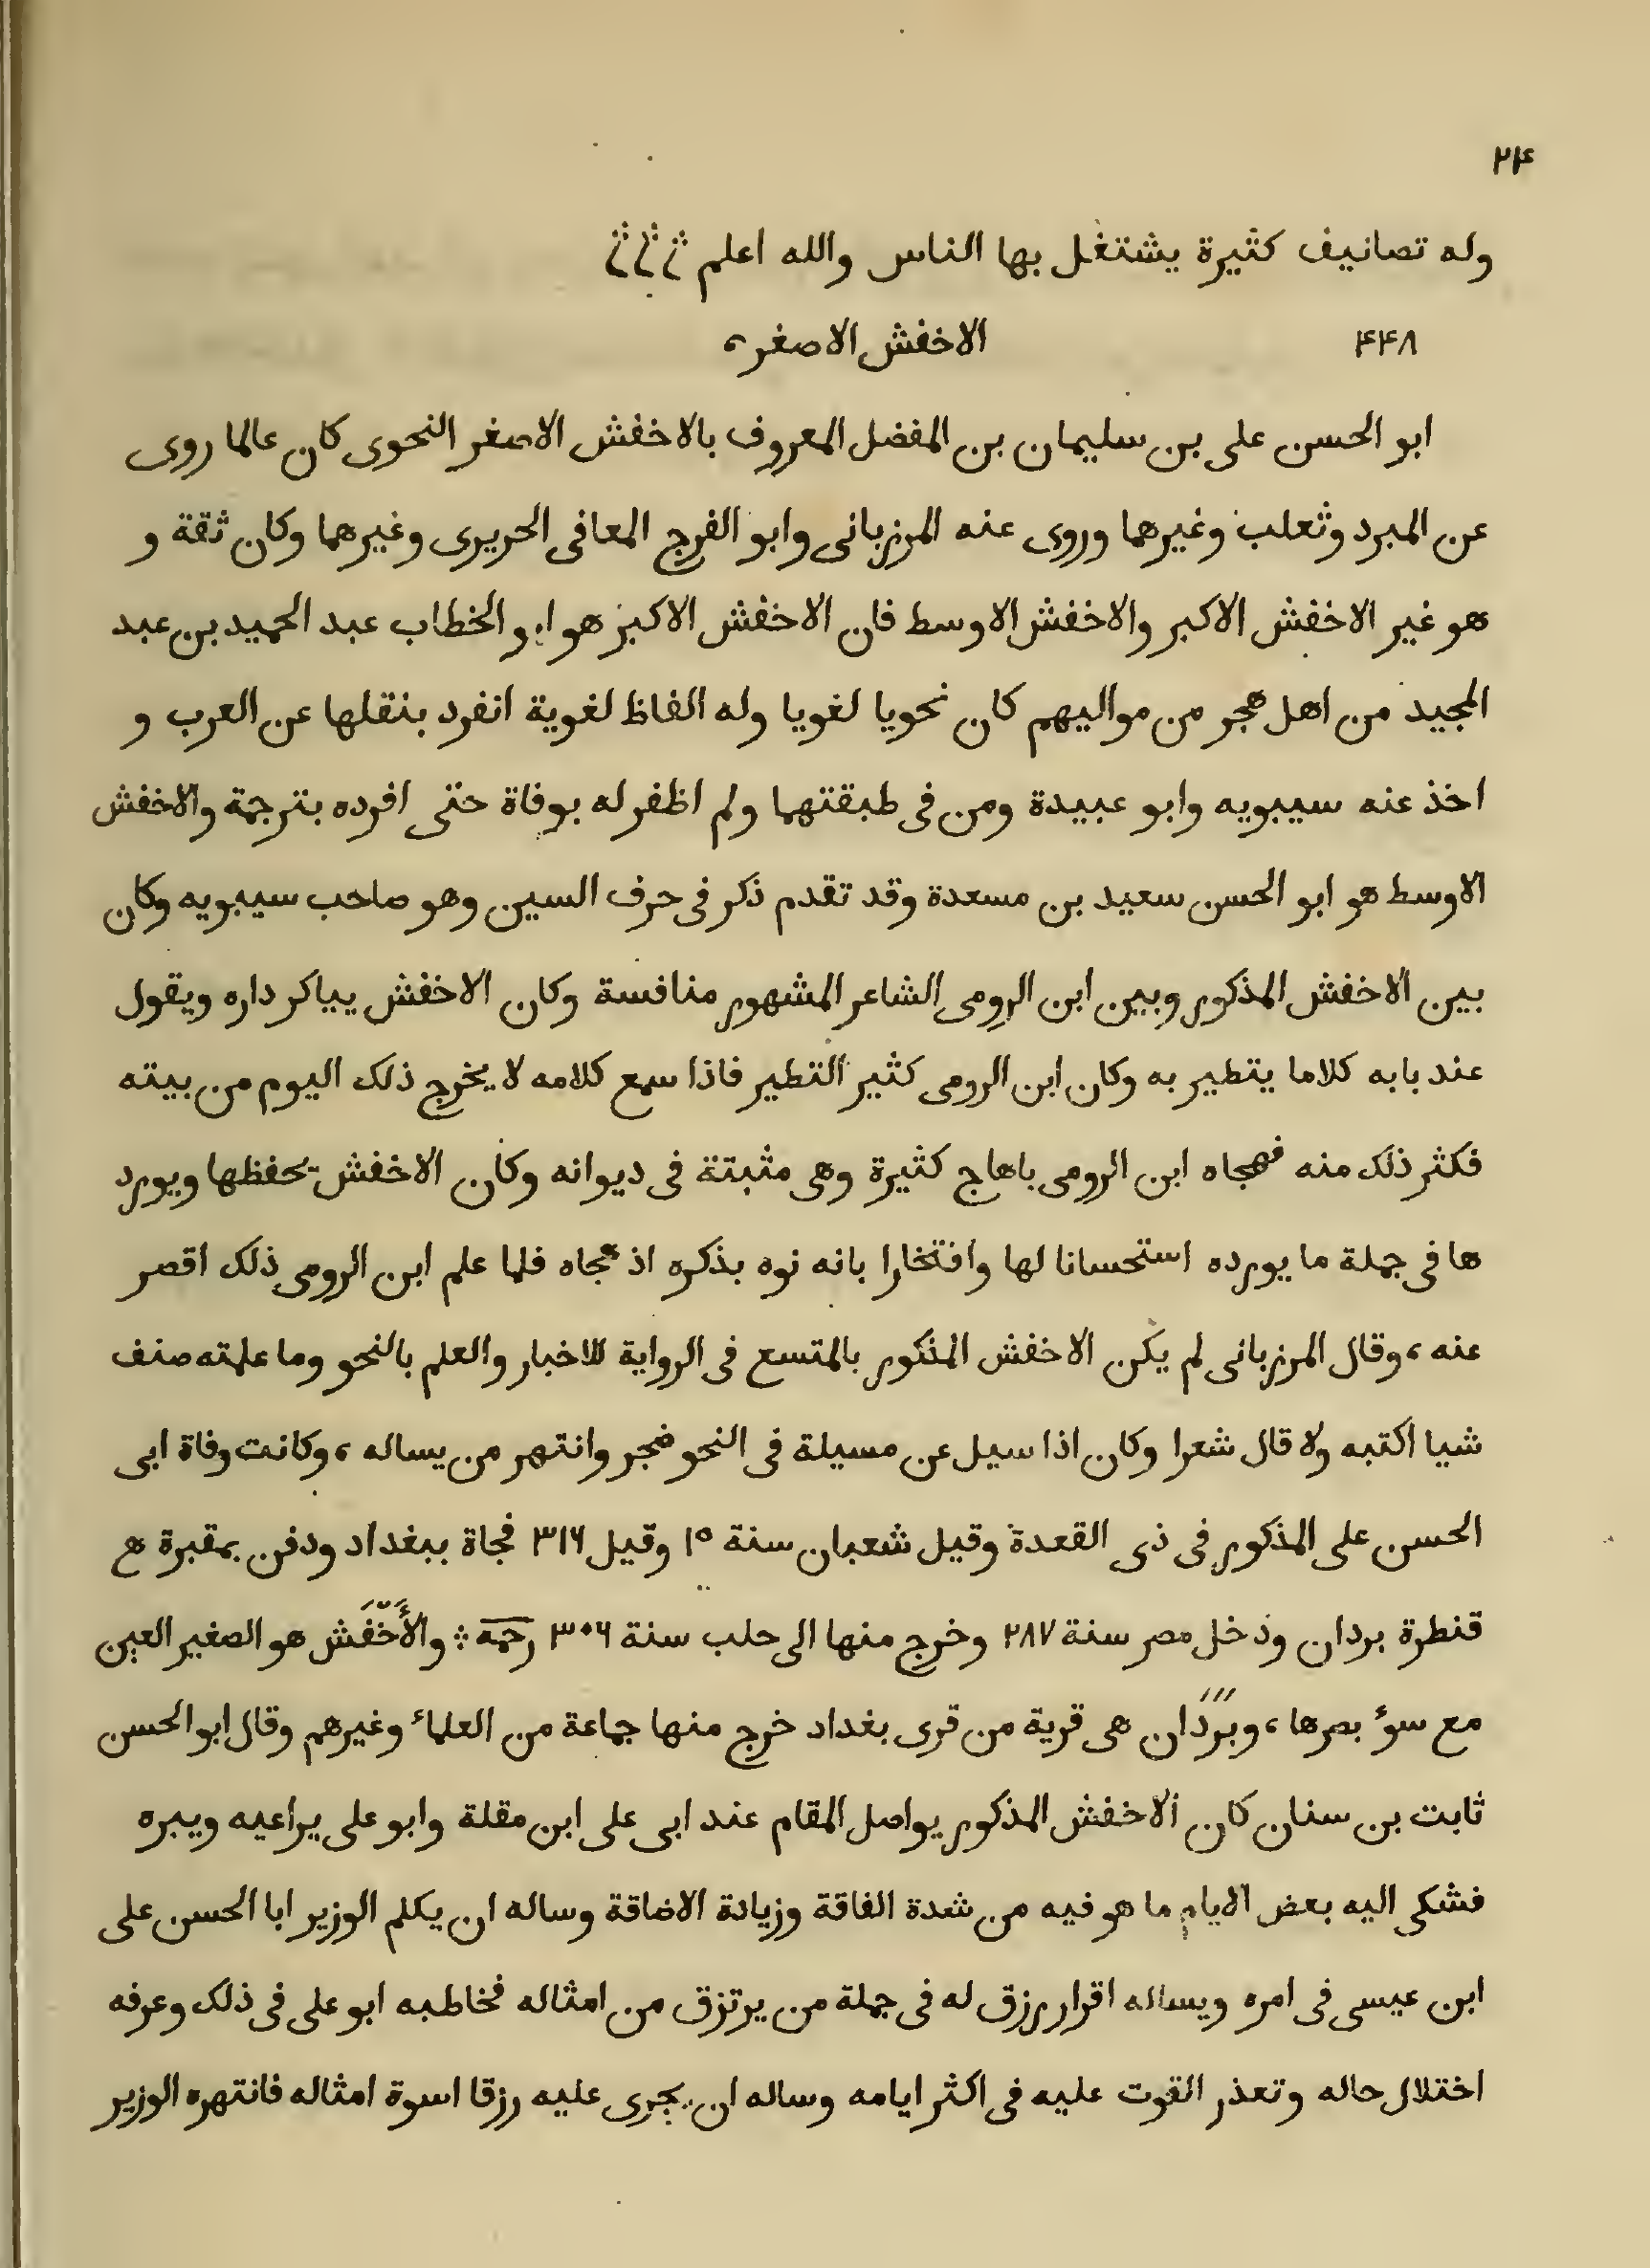 ٢٤
وله تصانيف كثيرة يشتغل بها الناس والله اعلم
٤٤٨ الاخفش الاصغر،
ابو الحسن على بن سليمان بن المفضل المعروف بالاخفش الاصغر النحوى كان عالما روى
عن المبرد وثعلب وغيرهما وروى عنه المرزبانى وابو الفرج المعافى الحريرى وغيرهما وكان ثقة و
هو غير الاخفش الاكبر والاخفش الاوسط فان الاخفش الاكبر هو ابو الخطاب عبد الحميد بن عبد
المجيد من اهل هجر من مواليهم كان نحويا لغويا وله الفاظ لغوية انفرد بنقلها عن العرب و
اخذ عنه سيبويه وابو عبيدة ومن فى طبقتهما ولم اظفر له بوفاة حتى افرده بترجمة والاخفش
الاوسط هو ابو الحسن سعيد بن مسعدة وقد تقدم ذكر فى حرف السين وهو صاحب سيبويه وكان
بين الاخفش المذكور وبين ابن الرومى الشاعر المشهور منافسة وكان الاخفش يباكر داره ويقول
عند بابه كلاما يتطير به وكان ابن الرومى كثير التطير فاذا سمع كلامه لا يخرج ذلك اليوم من بيته
فكثر ذلك منه فهجاه ابن الرومى باهاج كثيرة وهى مثبتة فى ديوانه وكان الاخفش يحفظها ويورد
ها فى جملة ما يورده استحسانا لها وافتخارا بانه نوه بذكره اذ هجاه فلما علم ابن الرومى ذلك اقصر
عنه، وقال المرزبانى لم يكن الاخفش المذكور بالمتسع فى الرواية للاخبار والعلم بالنحو وما علمته صنف
شيا اكتبه ولا قال شعرا وكان اذا سيل عن مسيلة فى النحو ضجر وانتهر من يساله، وكانت وفاة ابى
الحسن على المذكور فى ذى القعدة وقيل شعبان سنة ١٥ وقيل ٣١٦ فجاة ببغداد ودفن بمقبرة
قنطرة بردان ودخل مصر سنة ٢٨٧ وخرج منها الى حلب سنة ٣٠٦ رحمه والأَخْفَش هو الصغير العين
مع سوء بصرها، وبَرَدَان هى قرية من قرى بغداد خرج منها جماعة من العلماء وغيرهم وقال ابو الحسن
ثابت بن سنان كان الاخفش المذكور يواصل المقام عند ابى على ابن مقلة وابو على يراعيه ويبره
فشكى اليه بعض الايام ما هو فيه من شدة الفاقة وزيادة الاضاقة وساله ان يكلم الوزير ابا الحسن على
ابن عيسى فى امره ويساله اقرار رزق له فى جملة من يرتزق من امثاله فخاطبه ابو على فى ذلك وعرفه
اختلال حاله وتعذر القوت عليه فى اكثر ايامه وساله ان يجرى عليه رزقا اسوة امثاله فانتهره الوزير